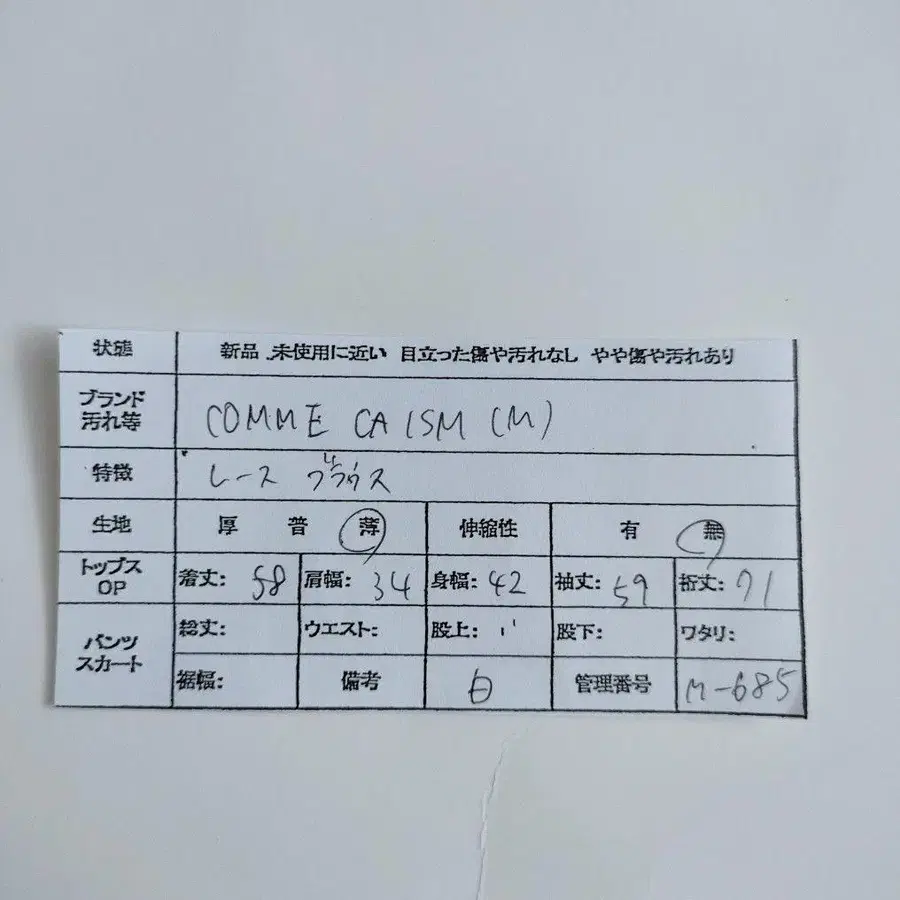 状態 新品 未使用に近い 目立った傷や汚れなし やや傷や汚れあり
ブランド
汚れ等 COMME CA ISM (M)
特徴 レース ブラウス
生地 厚 普 薄 伸縮性 有 無
トップス
OP 着丈: 58 肩幅: 34 身幅: 42 袖丈: 59 裄丈: 71
パンツ
スカート 総丈: ウエスト: 股上: 股下: ワタリ:
裾幅: 備考 白 管理番号 M-685